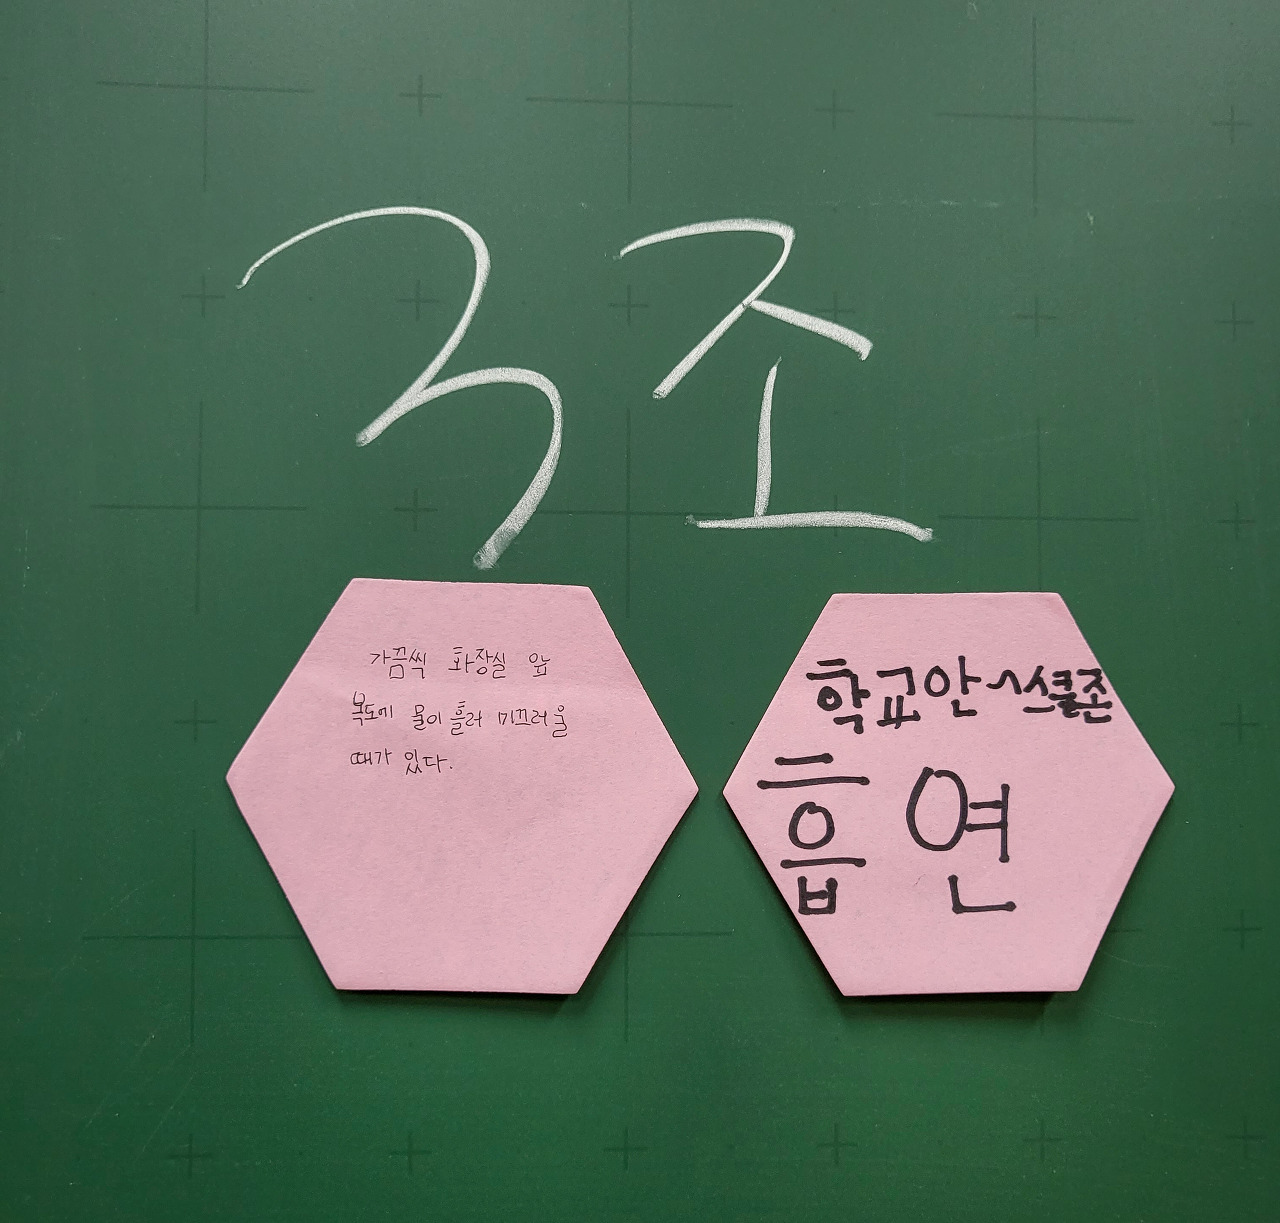 3조
가끔씩 화장실 앞
복도에 물이 흘러 미끄러울
때가 있다.
학교안~스쿨존
흡연